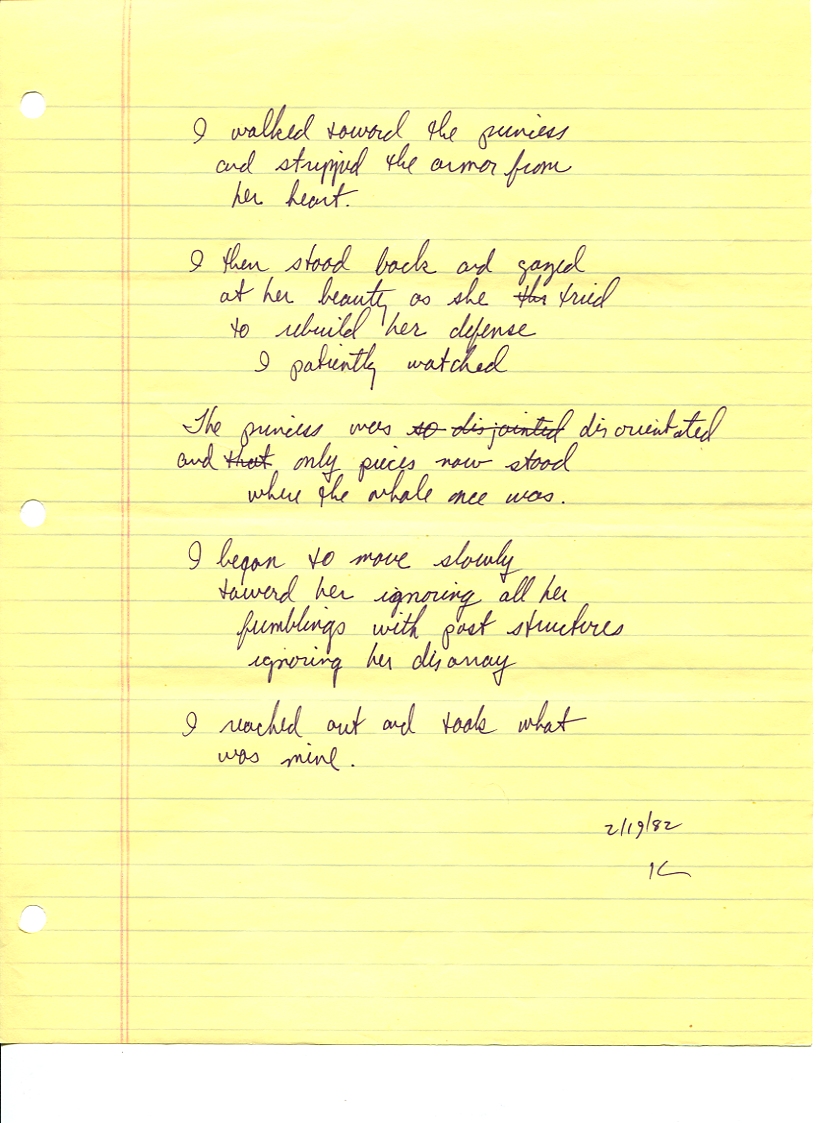 I walked toward the princess
and stripped the armor from
her heart.
I then stood back and gazed
at her beauty as she tried
to rebuild her defense
I patiently watched
The princess was so disjointed disorientated
and that only pieces now stood
where the whole once was.
I began to move slowly
toward her ignoring all her
fumblings with past structures
ignoring her disarray
I reached out and took what
was mine.
2/19/82
K